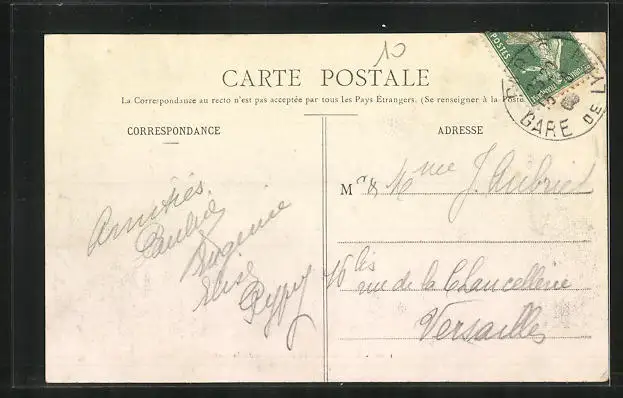 10
CARTE POSTALE
La Correspondance au recto n'est pas acceptée par tous les Pays Étrangers. (Se renseigner à la Poste
CORRESPONDANCE
ADRESSE
POSTES
GARE DE
M
Mme J. Aubried
16 bis
rue de la Chancellerie
Versailles
Amitiés
Pauline
Eugénie
Elise